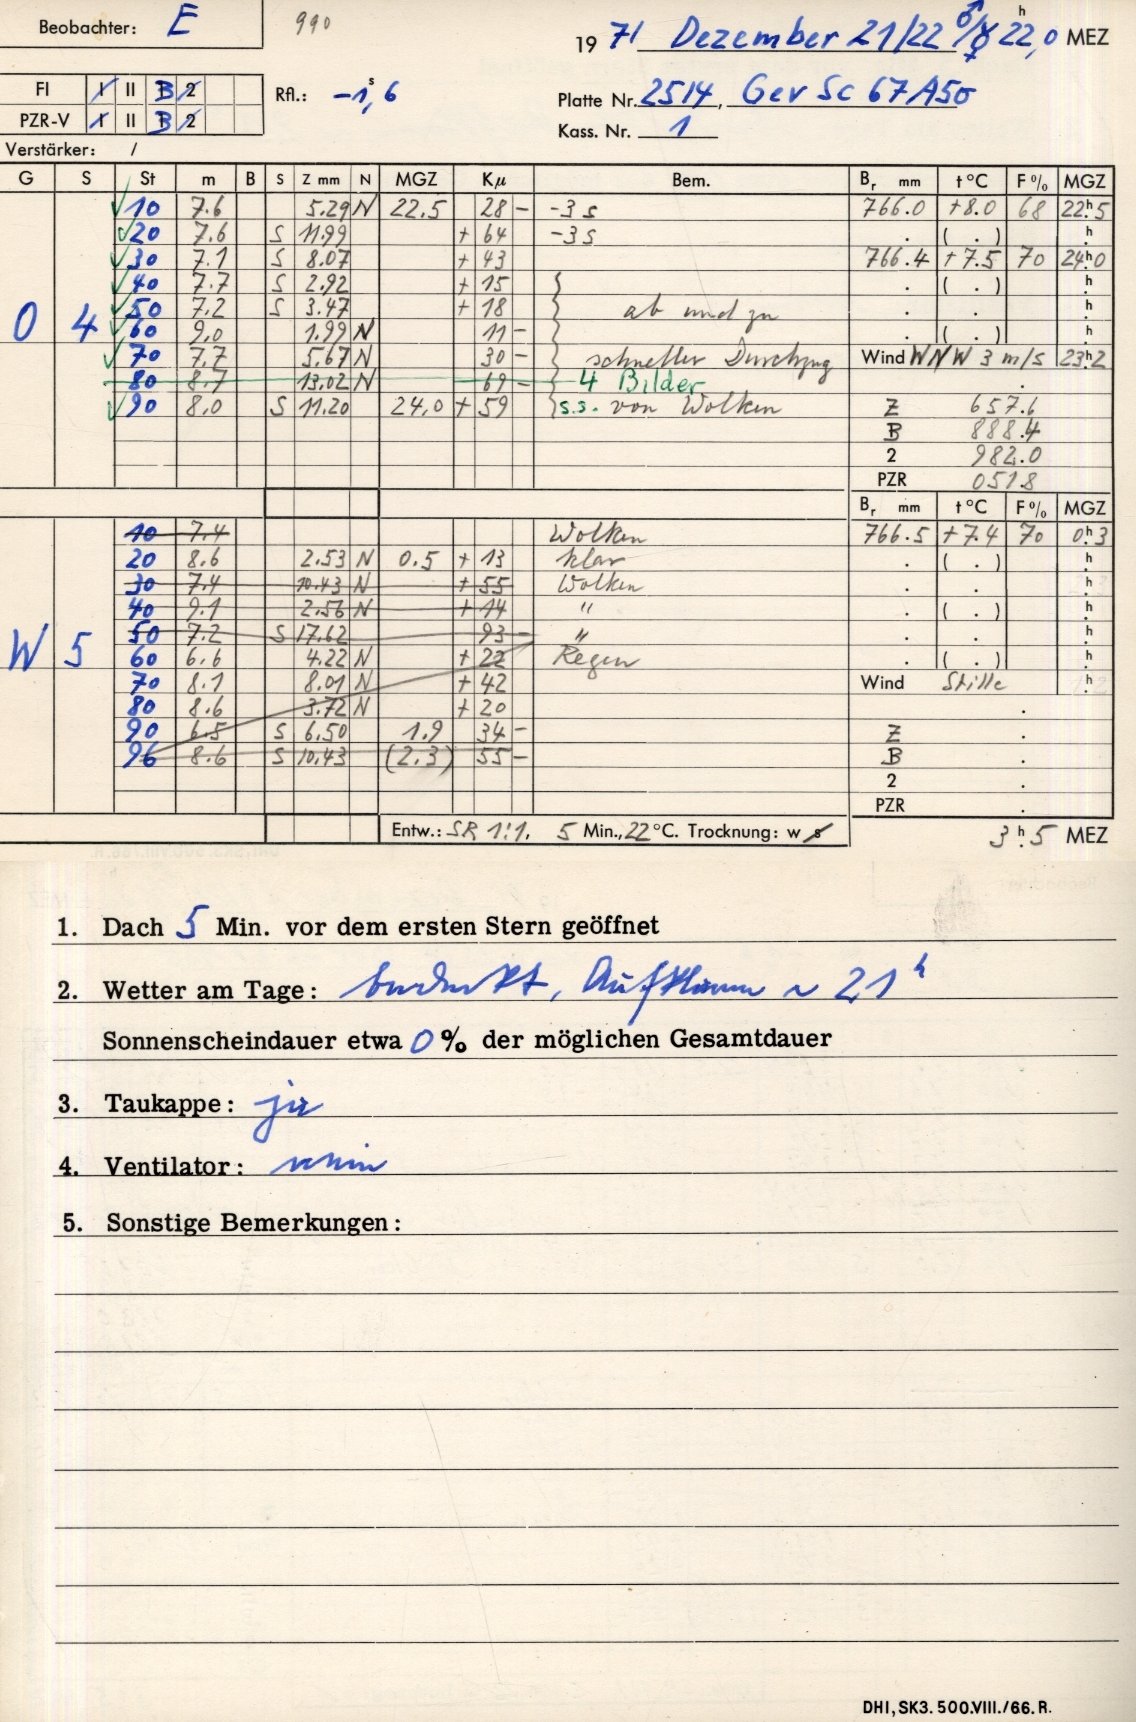 Beobachter: E 990 1971 Dezember 21/22 ♂/☿ 22,0 h MEZ
FI I II B 2 Rfl.: -1,6 s Platte Nr. 2514, Gev Sc 67A50
PZR-V I II B 2 Kass. Nr. 1
Verstärker: /
G S St m B S Z mm N MGZ Kµ Bem. Br mm t°C F% MGZ
10 7.6 5.29 N 22.5 28 - -3 s 766.0 +8.0 68 22h.5
20 7.6 S 11.99 + 64 -3 s . ( . ) h.
30 7.1 S 8.07 + 43 766.4 +7.5 70 24h.0
40 7.7 S 2.92 + 15 . ( . ) h.
50 7.2 S 3.47 + 18 ab und zu . . h.
O 4 60 9.0 1.99 N 11 - . ( . ) h.
70 7.7 5.67 N 30 - schneller Durchzug Wind WNW 3 m/s 23h.2
80 8.7 13.02 N 69 - 4 Bilder .
90 8.0 S 11.20 24.0 + 59 s.s. von Wolken Z 657.6
B 888.4
2 982.0
PZR 0518
Br mm t°C F% MGZ
10 7.4 Wolken 766.5 +7.4 70 0h.3
20 8.6 2.53 N 0.5 + 13 klar . ( . ) h.
30 7.4 10.43 N + 55 Wolken . . h.
40 9.1 2.56 N + 14 " . ( . ) h.
50 7.2 S 17.62 93 - " . . h.
W 5 60 6.6 4.22 N + 22 Regen . ( . ) h.
70 8.1 8.01 N + 42 Wind Stille h.
80 8.6 3.72 N + 20 .
90 6.5 S 6.50 1.9 34 - Z .
96 8.6 S 10.43 (2.3) 55 - B .
2 .
PZR .
Entw.: SR 1:1, 5 Min., 22 °C. Trocknung: w s 3h.5 MEZ
1. Dach 5 Min. vor dem ersten Stern geöffnet
2. Wetter am Tage: bedeckt, Aufklaren ~ 21 h
Sonnenscheindauer etwa 0 % der möglichen Gesamtdauer
3. Taukappe: ja
4. Ventilator: nein
5. Sonstige Bemerkungen:
DHI, SK3. 500.VIII./66. R.